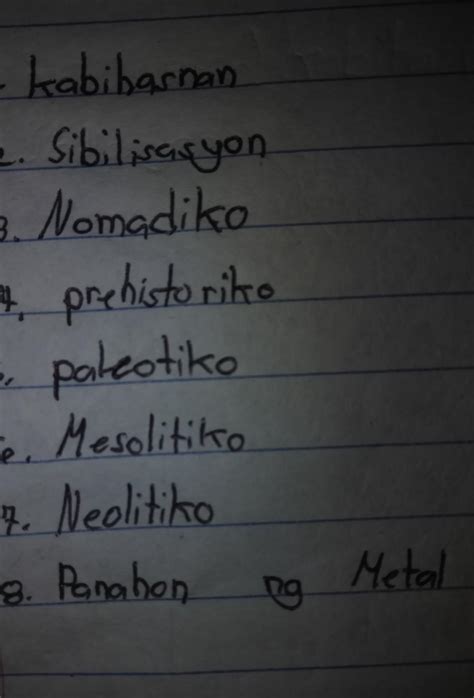 kabihasnan
2. Sibilisasyon
3. Nomadiko
4. prehistoriko
paleotiko
6. Mesolitiko
7. Neolitiko
8. Panahon ng Metal